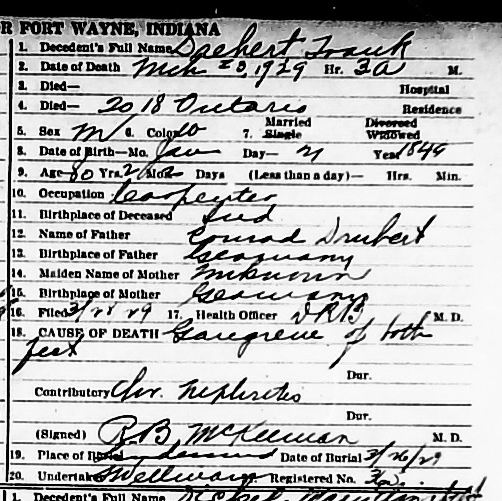 R FORT WAYNE, INDIANA
1. Decedent's Full Name Drebert Frank
2. Date of Death Mch 23, 1929 Hr. 3 A M.
3. Died— Hospital
4. Died— 2018 Ontario Residence
5. Sex M 6. Color W 7. Married Single Divorced Widowed
8. Date of Birth—Mo. Jan Day— 21 Year 1849
9. Age 80 Yrs. 2 Mo. 2 Days (Less than a day)— Hrs. Min.
10. Occupation Carpenter
11. Birthplace of Deceased Ind
12. Name of Father Conrad Drebert
13. Birthplace of Father Germany
14. Maiden Name of Mother Unknown
15. Birthplace of Mother Germany
16. Filed 3/25 29 17. Health Officer DRB M. D.
18. CAUSE OF DEATH Gangrene of both
feet
Dur.
Contributory Chr. Nephritis
Dur.
(Signed) R B McKeeman M. D.
19. Place of Burial Date of Burial 3/26/29
20. Undertaker Registered No.
1. Decedent's Full Name